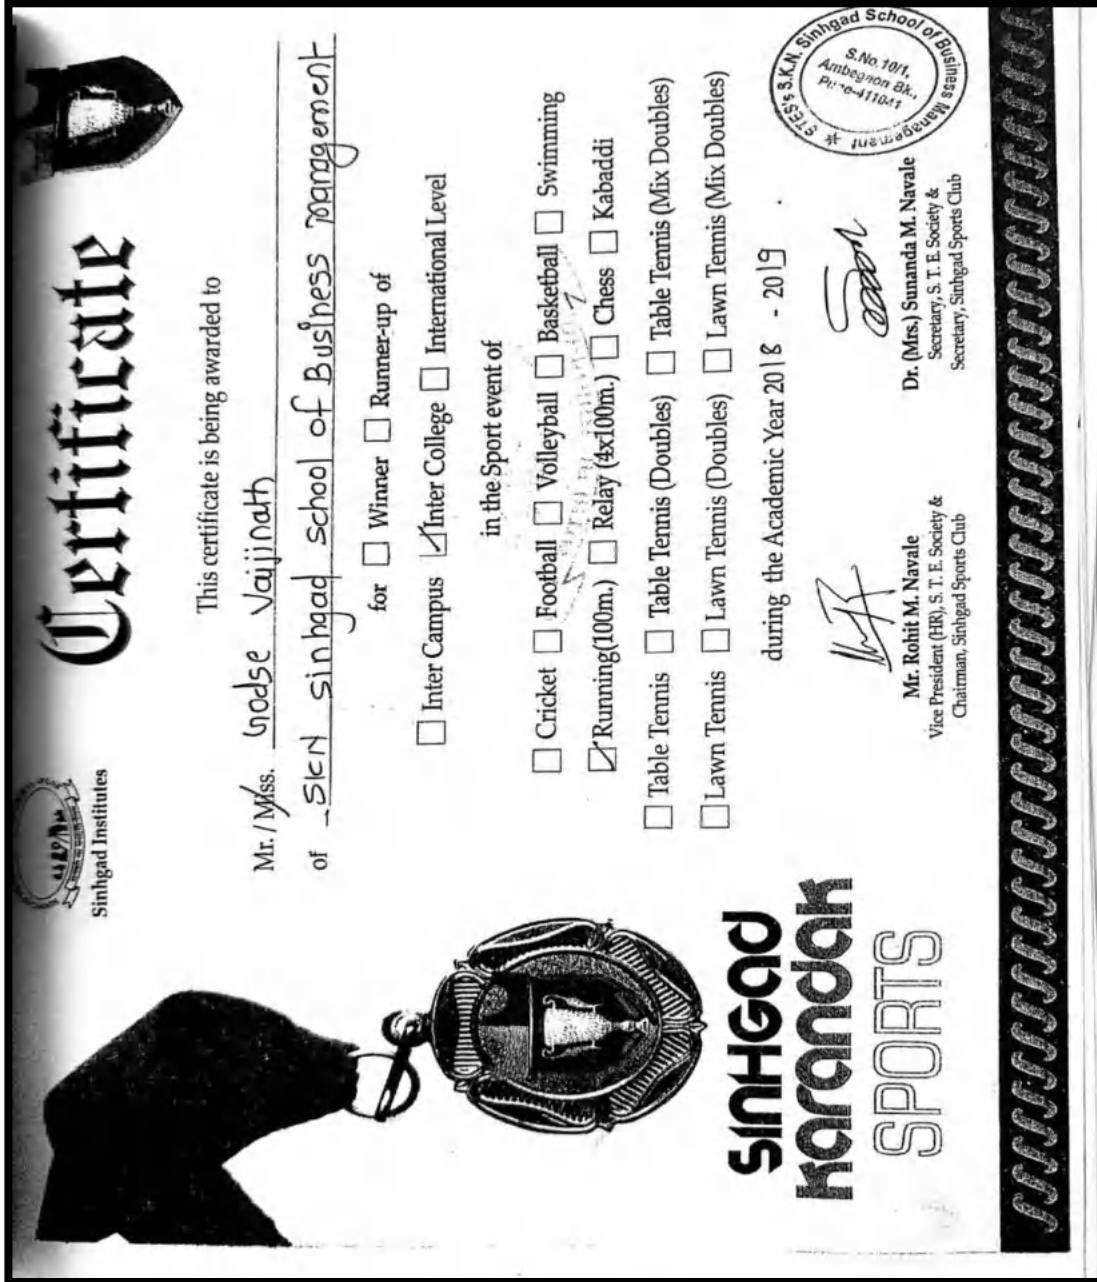 Sinhgad Institutes
Certificate
This certificate is being awarded to
Mr. / Miss. Godse Vaijinath
of SKN sinhgad school of Business management
for ☐ Winner ☐ Runner-up of
☐ Inter Campus ☑ Inter College ☐ International Level
in the Sport event of
☐ Cricket ☐ Football ☐ Volleyball ☐ Basketball ☐ Swimming
☑ Running(100m.) ☐ Relay (4x100m.) ☐ Chess ☐ Kabaddi
☐ Table Tennis ☐ Table Tennis (Doubles) ☐ Table Tennis (Mix Doubles)
☐ Lawn Tennis ☐ Lawn Tennis (Doubles) ☐ Lawn Tennis (Mix Doubles)
during the Academic Year 2018 - 2019 .
SINHGAD
KARANDAK
SPORTS
Mr. Rohit M. Navale
Vice President (HR), S. T. E. Society &
Chairman, Sinhgad Sports Club
Dr. (Mrs.) Sunanda M. Navale
Secretary, S. T. E. Society &
Secretary, Sinhgad Sports Club
STES's S.K.N. Sinhgad School of Business Management *
S.No.10/1,
Ambegaon Bk.,
Pune-411041